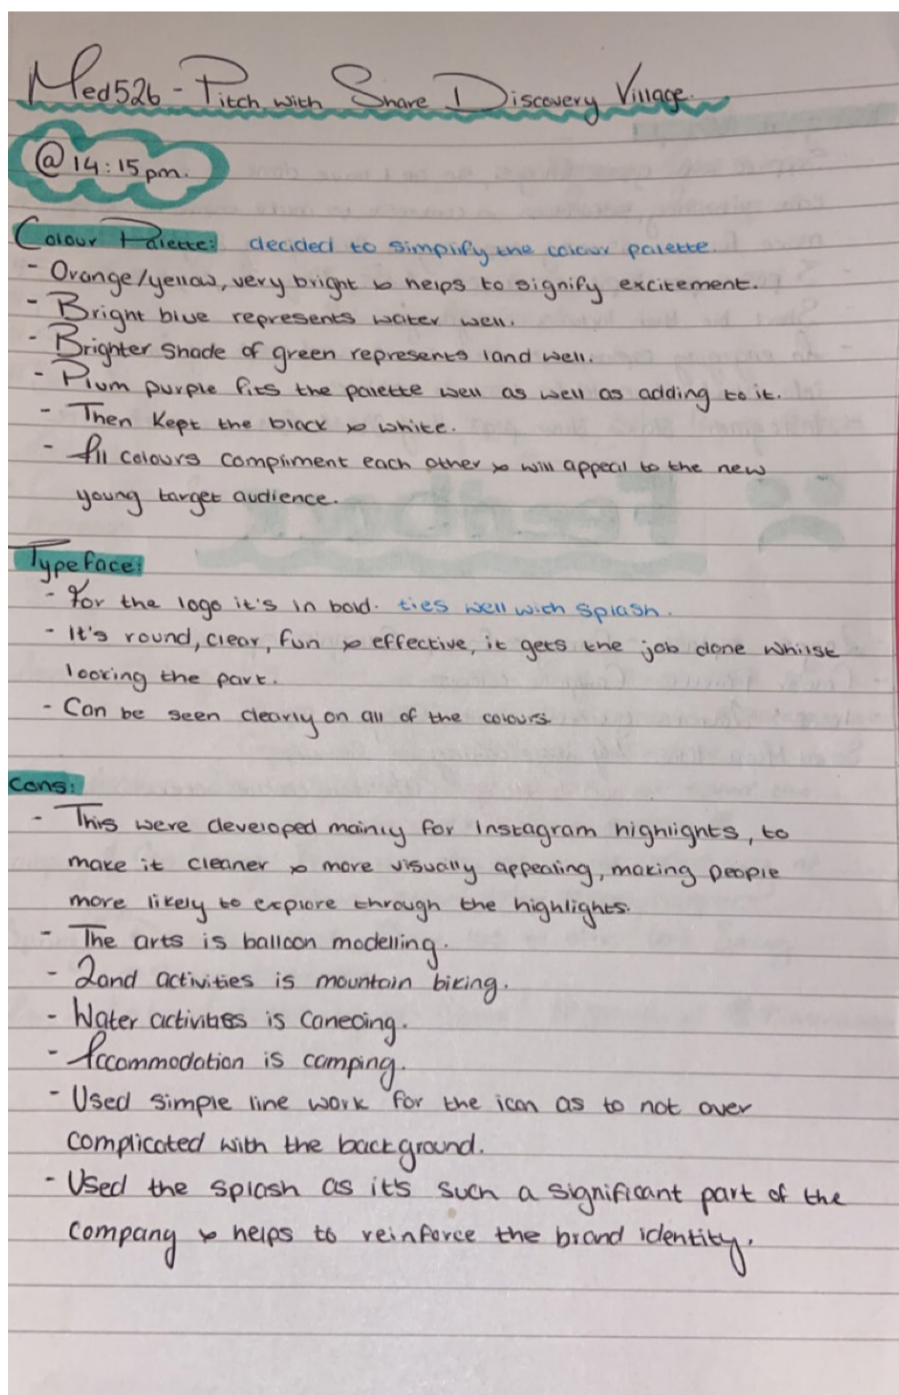 Med526 - Pitch with Share Discovery Village.
@ 14:15pm.
Colour Palette: decided to simplify the colour palette.
- Orange/yellow, very bright & helps to signify excitement.
- Bright blue represents water well.
- Brighter shade of green represents land well.
- Plum purple fits the palette well as well as adding to it.
- Then kept the black & white.
- All colours compliment each other & will appeal to the new
young target audience.
Typeface:
- For the logo it's in bold. ties well with splash.
- It's round, clear, fun & effective, it gets the job done whilst
looking the part.
- Can be seen clearly on all of the colours
Cons:
- This were developed mainly for Instagram highlights, to
make it cleaner & more visually appealing, making people
more likely to explore through the highlights.
- The arts is balloon modelling.
- Land activities is mountain biking.
- Water activities is Canoeing.
- Accommodation is camping.
- Used simple line work for the icon as to not over
complicated with the background.
- Used the splash as it's such a significant part of the
company & helps to reinforce the brand identity.